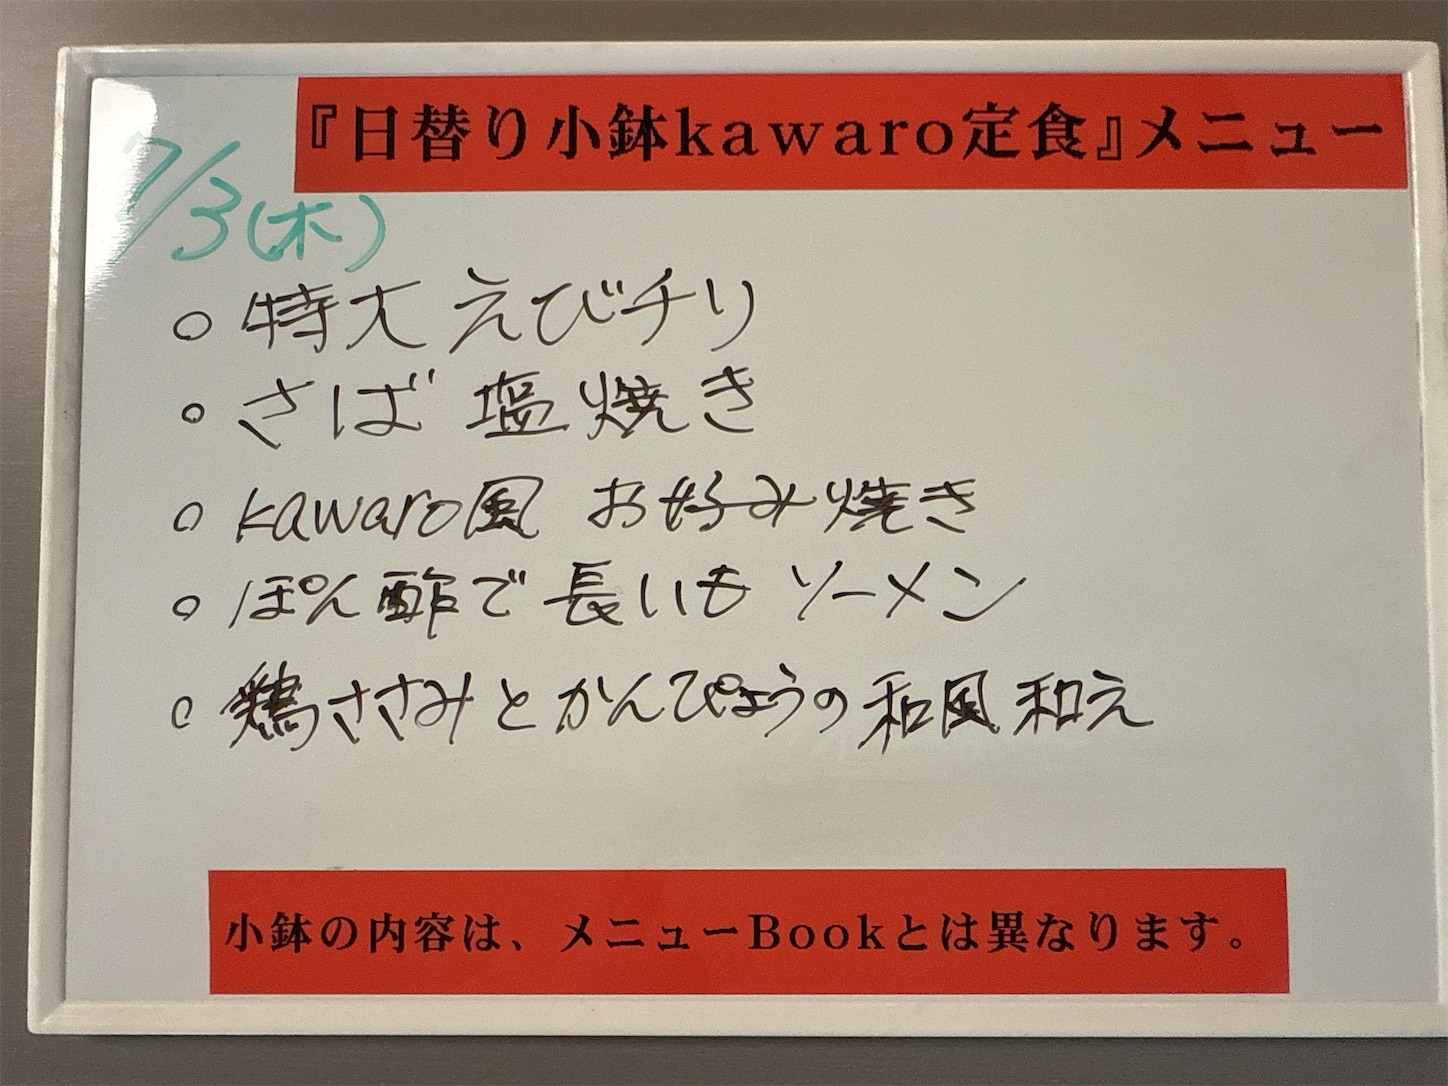 『日替り小鉢kawaro定食』メニュー
7/3(木)
○ 特大 えびチリ
○ さば 塩焼き
○ kawaro風 お好み焼き
○ ぽん酢で 長いも ソーメン
○ 鶏ささみとかんぴょうの和風和え
小鉢の内容は、メニューBookとは異なります。